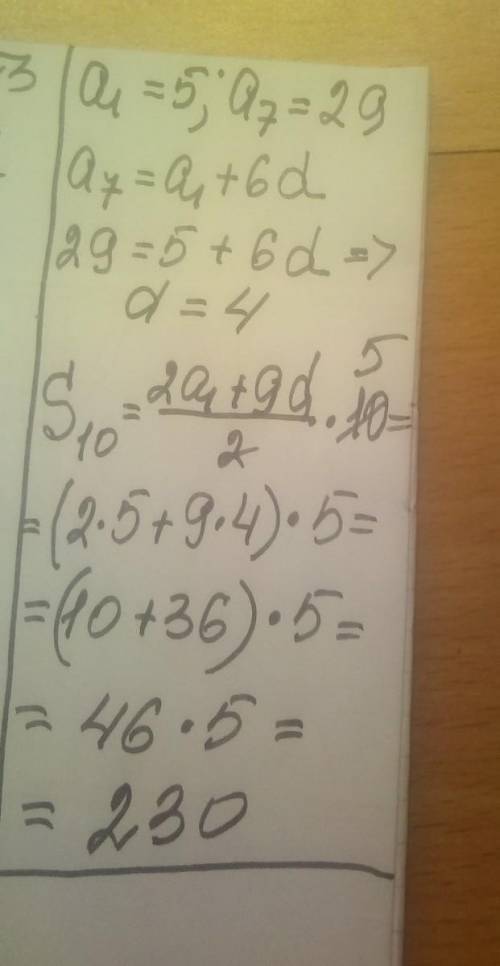 a₁ = 5; a₇ = 29
a₇ = a₁ + 6d
29 = 5 + 6d =>
d = 4
S₁₀ = (2a₁ + 9d)/2 · 10 = 5
= (2·5 + 9·4)·5 =
= (10 + 36)·5 =
= 46·5 =
= 230